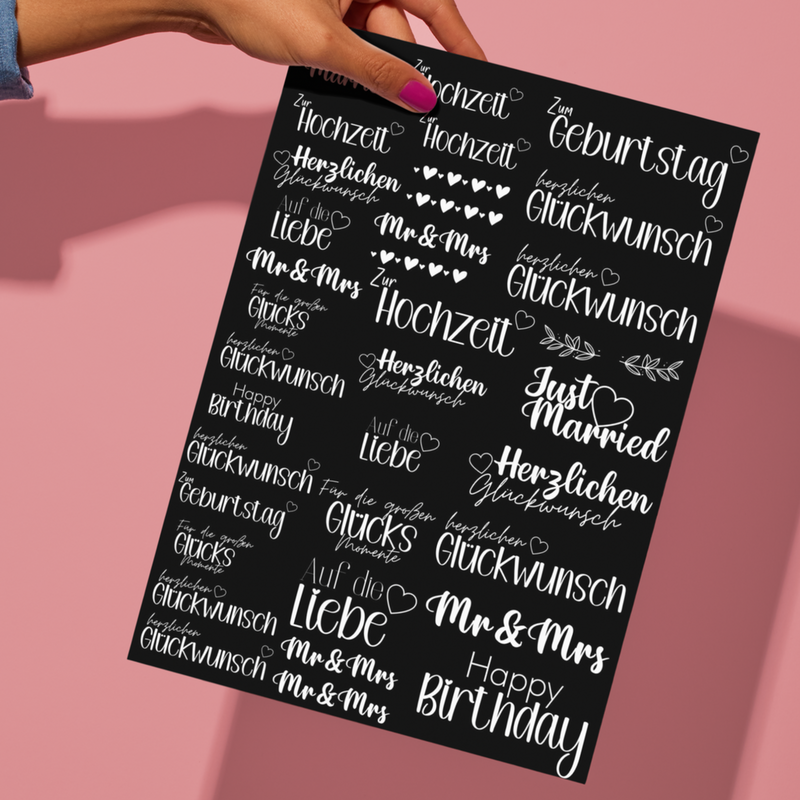 Married
Zur
Hochzeit
Zur
Hochzeit
Zur
Hochzeit
Zum
Geburtstag
Herzlichen
Glückwunsch
herzlichen
Glückwunsch
Auf die
Liebe
Mr & Mrs
herzlichen
Glückwunsch
Mr & Mrs
Zur
Hochzeit
Für die großen
Glücks
Momente
herzlichen
Glückwunsch
Herzlichen
Glückwunsch
Just
Married
Happy
Birthday
Auf die
Liebe
Herzlichen
Glückwunsch
herzlichen
Glückwunsch
Zum
Geburtstag
Für die großen
Glücks
Momente
herzlichen
Glückwunsch
Für die großen
Glücks
Momente
Auf die
Liebe
Mr & Mrs
herzlichen
Glückwunsch
herzlichen
Glückwunsch
Mr & Mrs
Mr & Mrs
Happy
Birthday